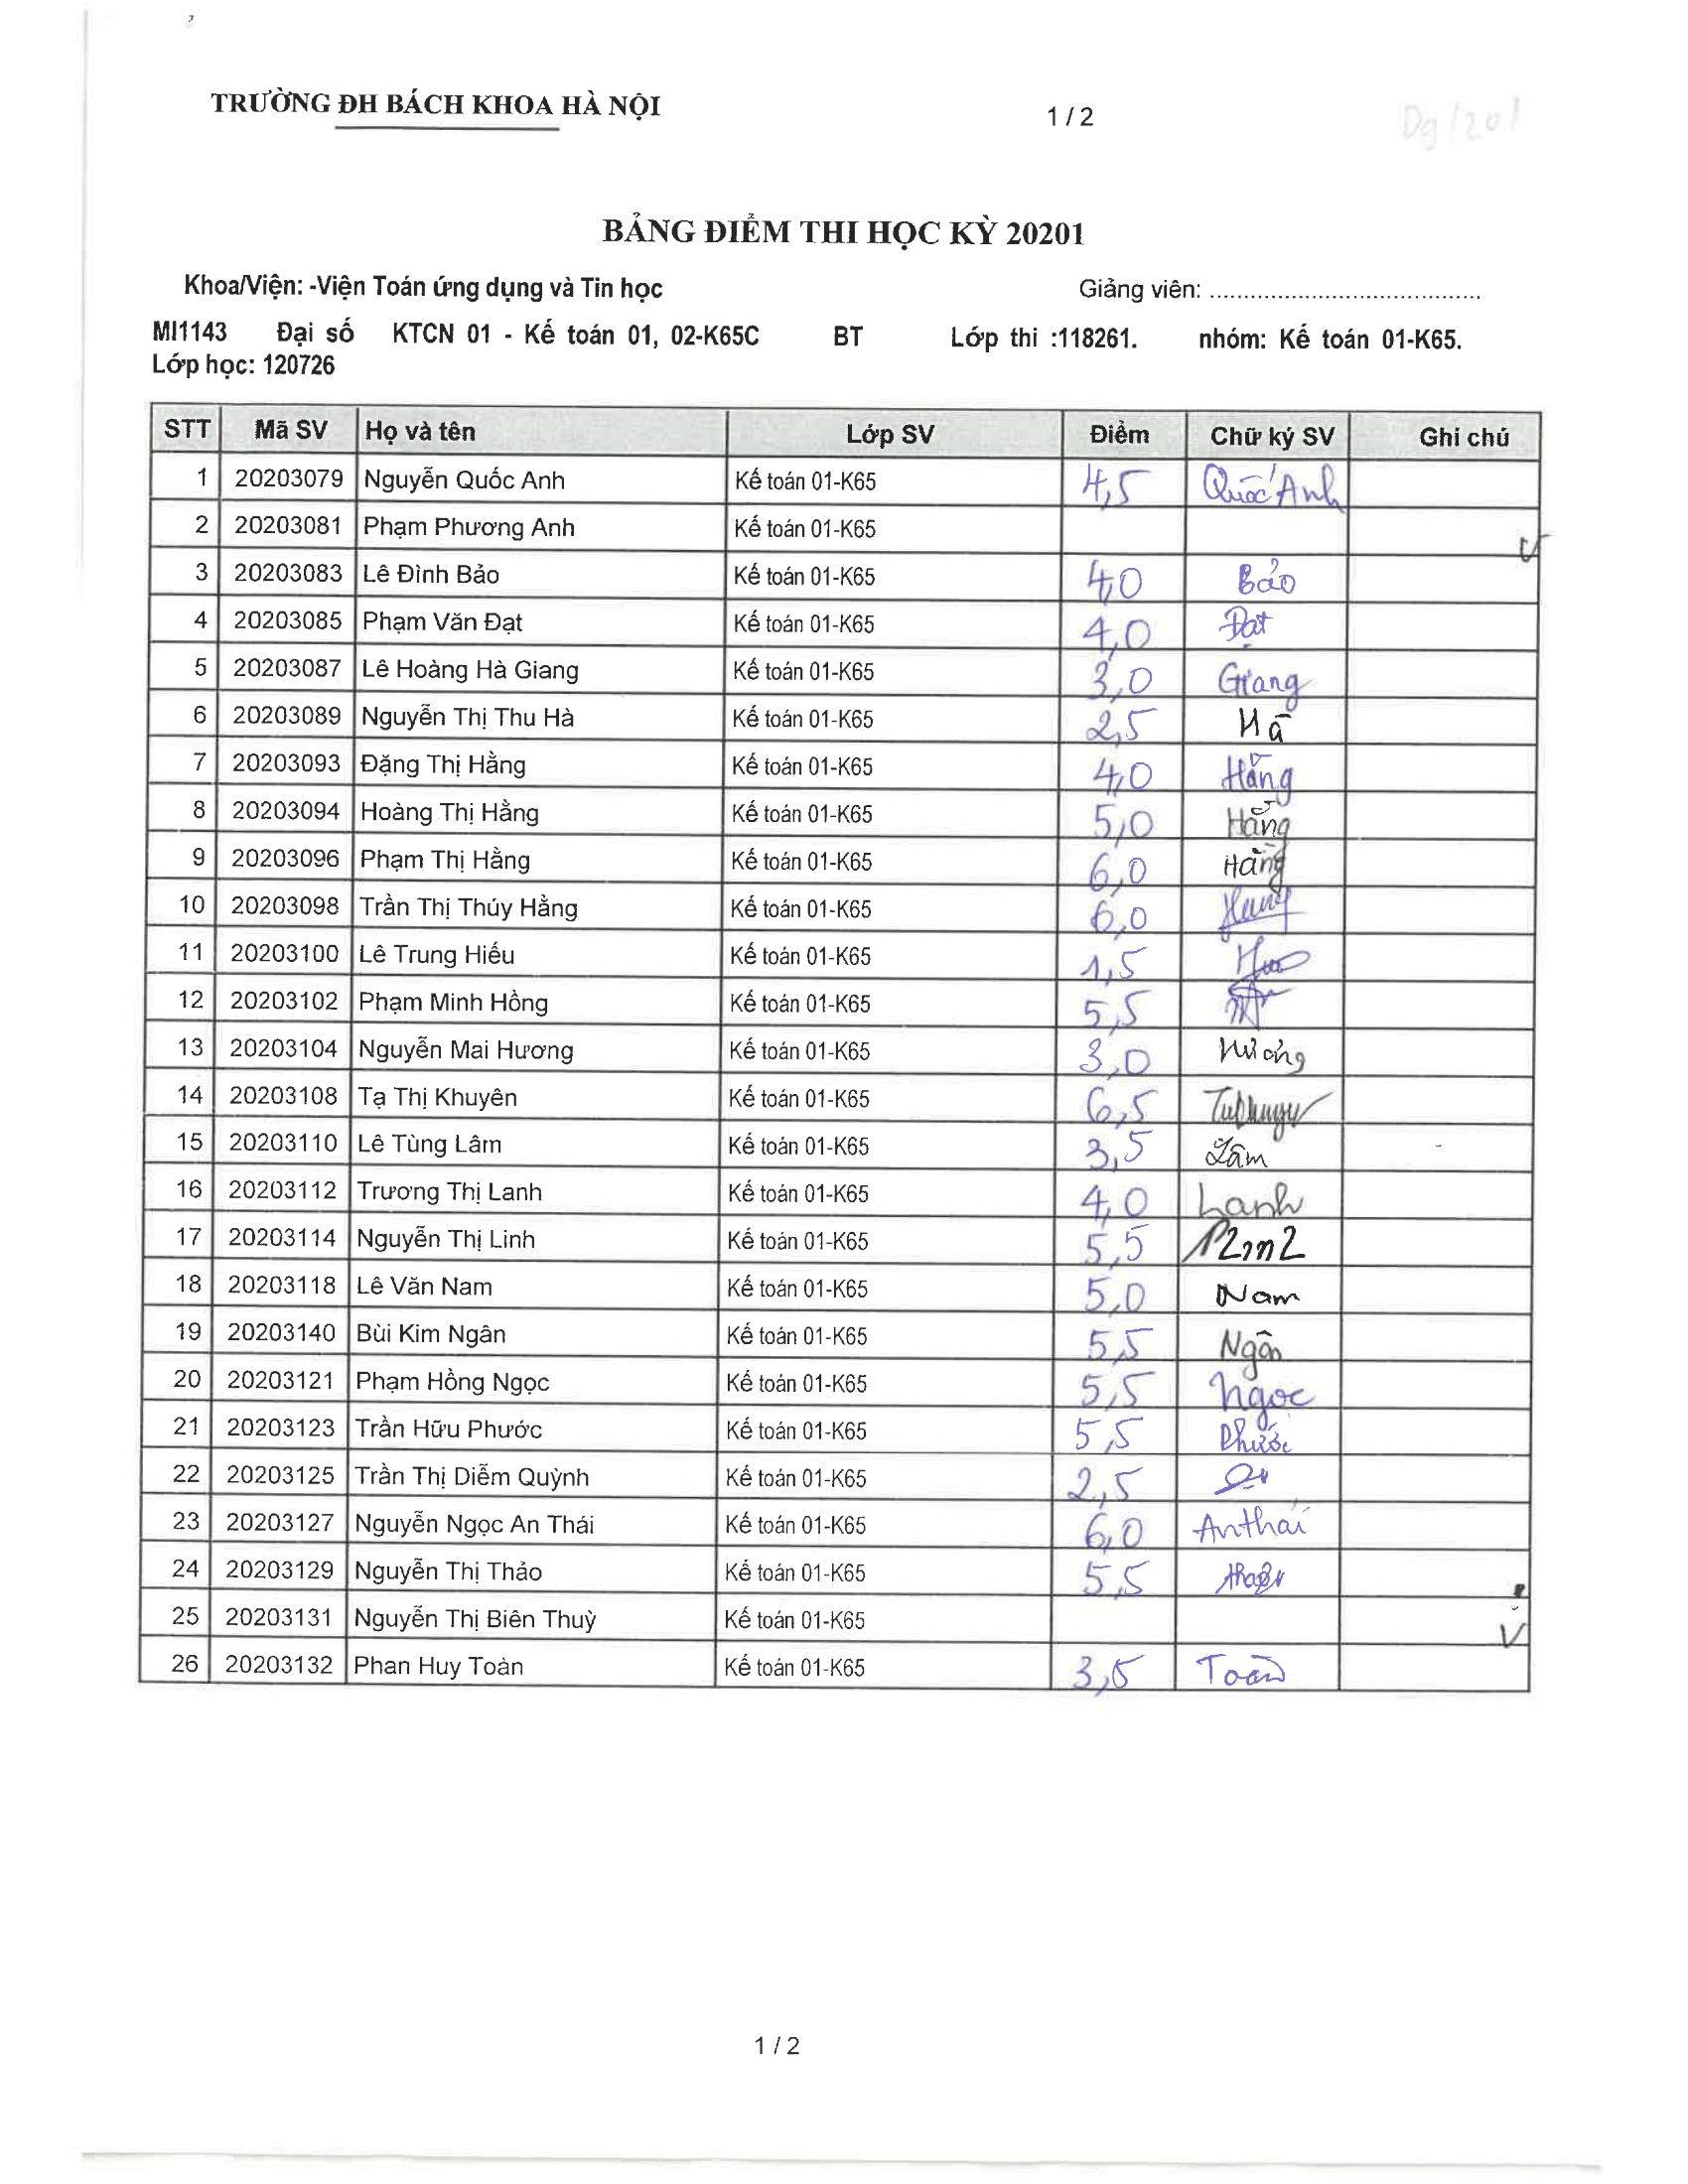 TRƯỜNG ĐH BÁCH KHOA HÀ NỘI 1 / 2
BẢNG ĐIỂM THI HỌC KỲ 20201
Khoa/Viện: -Viện Toán ứng dụng và Tin học Giảng viên: ........................................
MI1143 Đại số KTCN 01 - Kế toán 01, 02-K65C BT Lớp thi :118261. nhóm: Kế toán 01-K65.
Lớp học: 120726
STT Mã SV Họ và tên Lớp SV Điểm Chữ ký SV Ghi chú
1 20203079 Nguyễn Quốc Anh Kế toán 01-K65 4,5 Quốc Anh
2 20203081 Phạm Phương Anh Kế toán 01-K65 V
3 20203083 Lê Đình Bảo Kế toán 01-K65 4,0 Bảo
4 20203085 Phạm Văn Đạt Kế toán 01-K65 4,0 Đạt
5 20203087 Lê Hoàng Hà Giang Kế toán 01-K65 3,0 Giang
6 20203089 Nguyễn Thị Thu Hà Kế toán 01-K65 2,5 Hà
7 20203093 Đặng Thị Hằng Kế toán 01-K65 4,0 Hằng
8 20203094 Hoàng Thị Hằng Kế toán 01-K65 5,0 Hằng
9 20203096 Phạm Thị Hằng Kế toán 01-K65 6,0 Hằng
10 20203098 Trần Thị Thúy Hằng Kế toán 01-K65 6,0
11 20203100 Lê Trung Hiếu Kế toán 01-K65 1,5
12 20203102 Phạm Minh Hồng Kế toán 01-K65 5,5
13 20203104 Nguyễn Mai Hương Kế toán 01-K65 3,0 Hương
14 20203108 Tạ Thị Khuyên Kế toán 01-K65 6,5
15 20203110 Lê Tùng Lâm Kế toán 01-K65 3,5 Lâm
16 20203112 Trương Thị Lanh Kế toán 01-K65 4,0 Lanh
17 20203114 Nguyễn Thị Linh Kế toán 01-K65 5,5
18 20203118 Lê Văn Nam Kế toán 01-K65 5,0 Nam
19 20203140 Bùi Kim Ngân Kế toán 01-K65 5,5 Ngân
20 20203121 Phạm Hồng Ngọc Kế toán 01-K65 5,5 Ngọc
21 20203123 Trần Hữu Phước Kế toán 01-K65 5,5 Phước
22 20203125 Trần Thị Diễm Quỳnh Kế toán 01-K65 2,5
23 20203127 Nguyễn Ngọc An Thái Kế toán 01-K65 6,0 An thái
24 20203129 Nguyễn Thị Thảo Kế toán 01-K65 5,5
25 20203131 Nguyễn Thị Biên Thuỳ Kế toán 01-K65 V
26 20203132 Phan Huy Toàn Kế toán 01-K65 3,5 Toàn
1 / 2